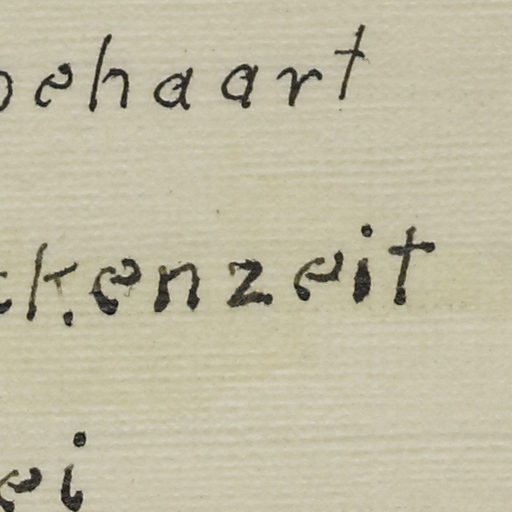 behaart
ckenzeit
ei